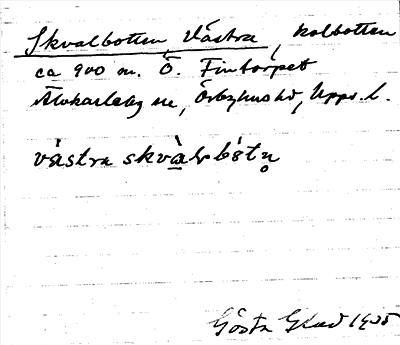 Skvalbotten Västra, kolbotten
ca 900 m. Ö. Fintorpet
Älvkarleby sn, Örbyhus hd, Upps. l.
västra skvàlsbótn̥
Gösta Glad 1935